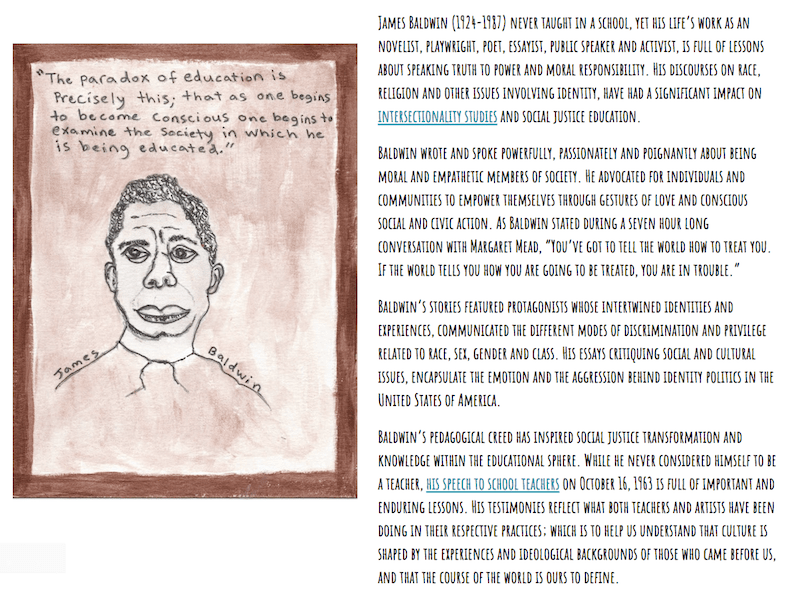 "The paradox of education is
Precisely this; that as one begins
to become conscious one begins to
examine the society in which he
is being educated."
James Baldwin
James Baldwin (1924-1987) never taught in a school, yet his life's work as an
novelist, playwright, poet, essayist, public speaker and activist, is full of lessons
about speaking truth to power and moral responsibility. His discourses on race,
religion and other issues involving identity, have had a significant impact on
intersectionality studies and social justice education.
Baldwin wrote and spoke powerfully, passionately and poignantly about being
moral and empathetic members of society. He advocated for individuals and
communities to empower themselves through gestures of love and conscious
social and civic action. As Baldwin stated during a seven hour long
conversation with Margaret Mead, "You've got to tell the world how to treat you.
If the world tells you how you are going to be treated, you are in trouble."
Baldwin's stories featured protagonists whose intertwined identities and
experiences, communicated the different modes of discrimination and privilege
related to race, sex, gender and class. His essays critiquing social and cultural
issues, encapsulate the emotion and the aggression behind identity politics in the
United States of America.
Baldwin's pedagogical creed has inspired social justice transformation and
knowledge within the educational sphere. While he never considered himself to be
a teacher, his speech to school teachers on October 16, 1963 is full of important and
enduring lessons. His testimonies reflect what both teachers and artists have been
doing in their respective practices; which is to help us understand that culture is
shaped by the experiences and ideological backgrounds of those who came before us,
and that the course of the world is ours to define.